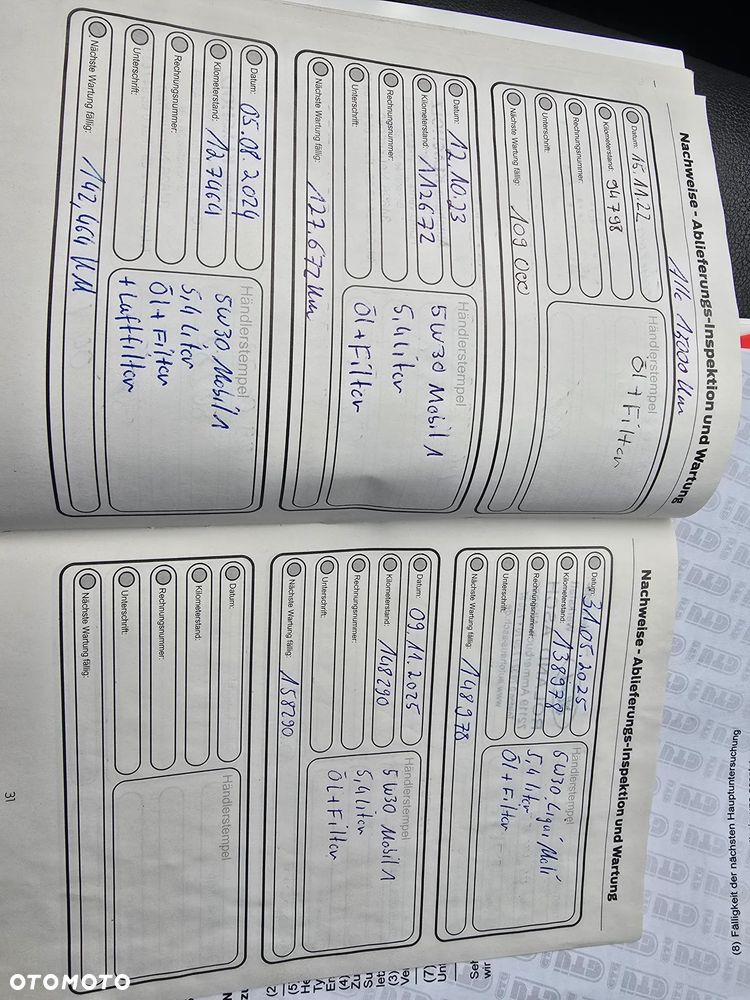 Nachweise - Ablieferungs-Inspektion und Wartung
Alle 15000 Km
Datum: 15.11.22
Kilometerstand: 94798
Rechnungsnummer:
Unterschrift:
Nächste Wartung fällig: 109000
Händlerstempel
Öl + Filter
Datum: 12.10.23
Kilometerstand: 112672
Rechnungsnummer:
Unterschrift:
Nächste Wartung fällig: 127.672 Km
Händlerstempel
5W30 Mobil 1
5,4 Liter
Öl + Filter
Datum: 05.08.2024
Kilometerstand: 127464
Rechnungsnummer:
Unterschrift:
Nächste Wartung fällig: 142,464 KM
Händlerstempel
5W30 Mobil 1
5,4 Liter
Öl + Filter
+ Luftfilter
Nachweise - Ablieferungs-Inspektion und Wartung
Datum: 31.05.2025
Kilometerstand: 138978
Rechnungsnummer:
Unterschrift:
Nächste Wartung fällig: 148978
Händlerstempel
5W30 Liqui Moli
5,4 Liter
Öl + Filter
Datum: 09.11.2025
Kilometerstand: 148290
Rechnungsnummer:
Unterschrift:
Nächste Wartung fällig: 158290
Händlerstempel
5W30 Mobil 1
5,4 Liter
Öl + Filter
Datum:
Kilometerstand:
Rechnungsnummer:
Unterschrift:
Nächste Wartung fällig:
Händlerstempel
31
(8) Fälligkeit der nächsten Hauptuntersuchung
GTÜ
OTOMOTO